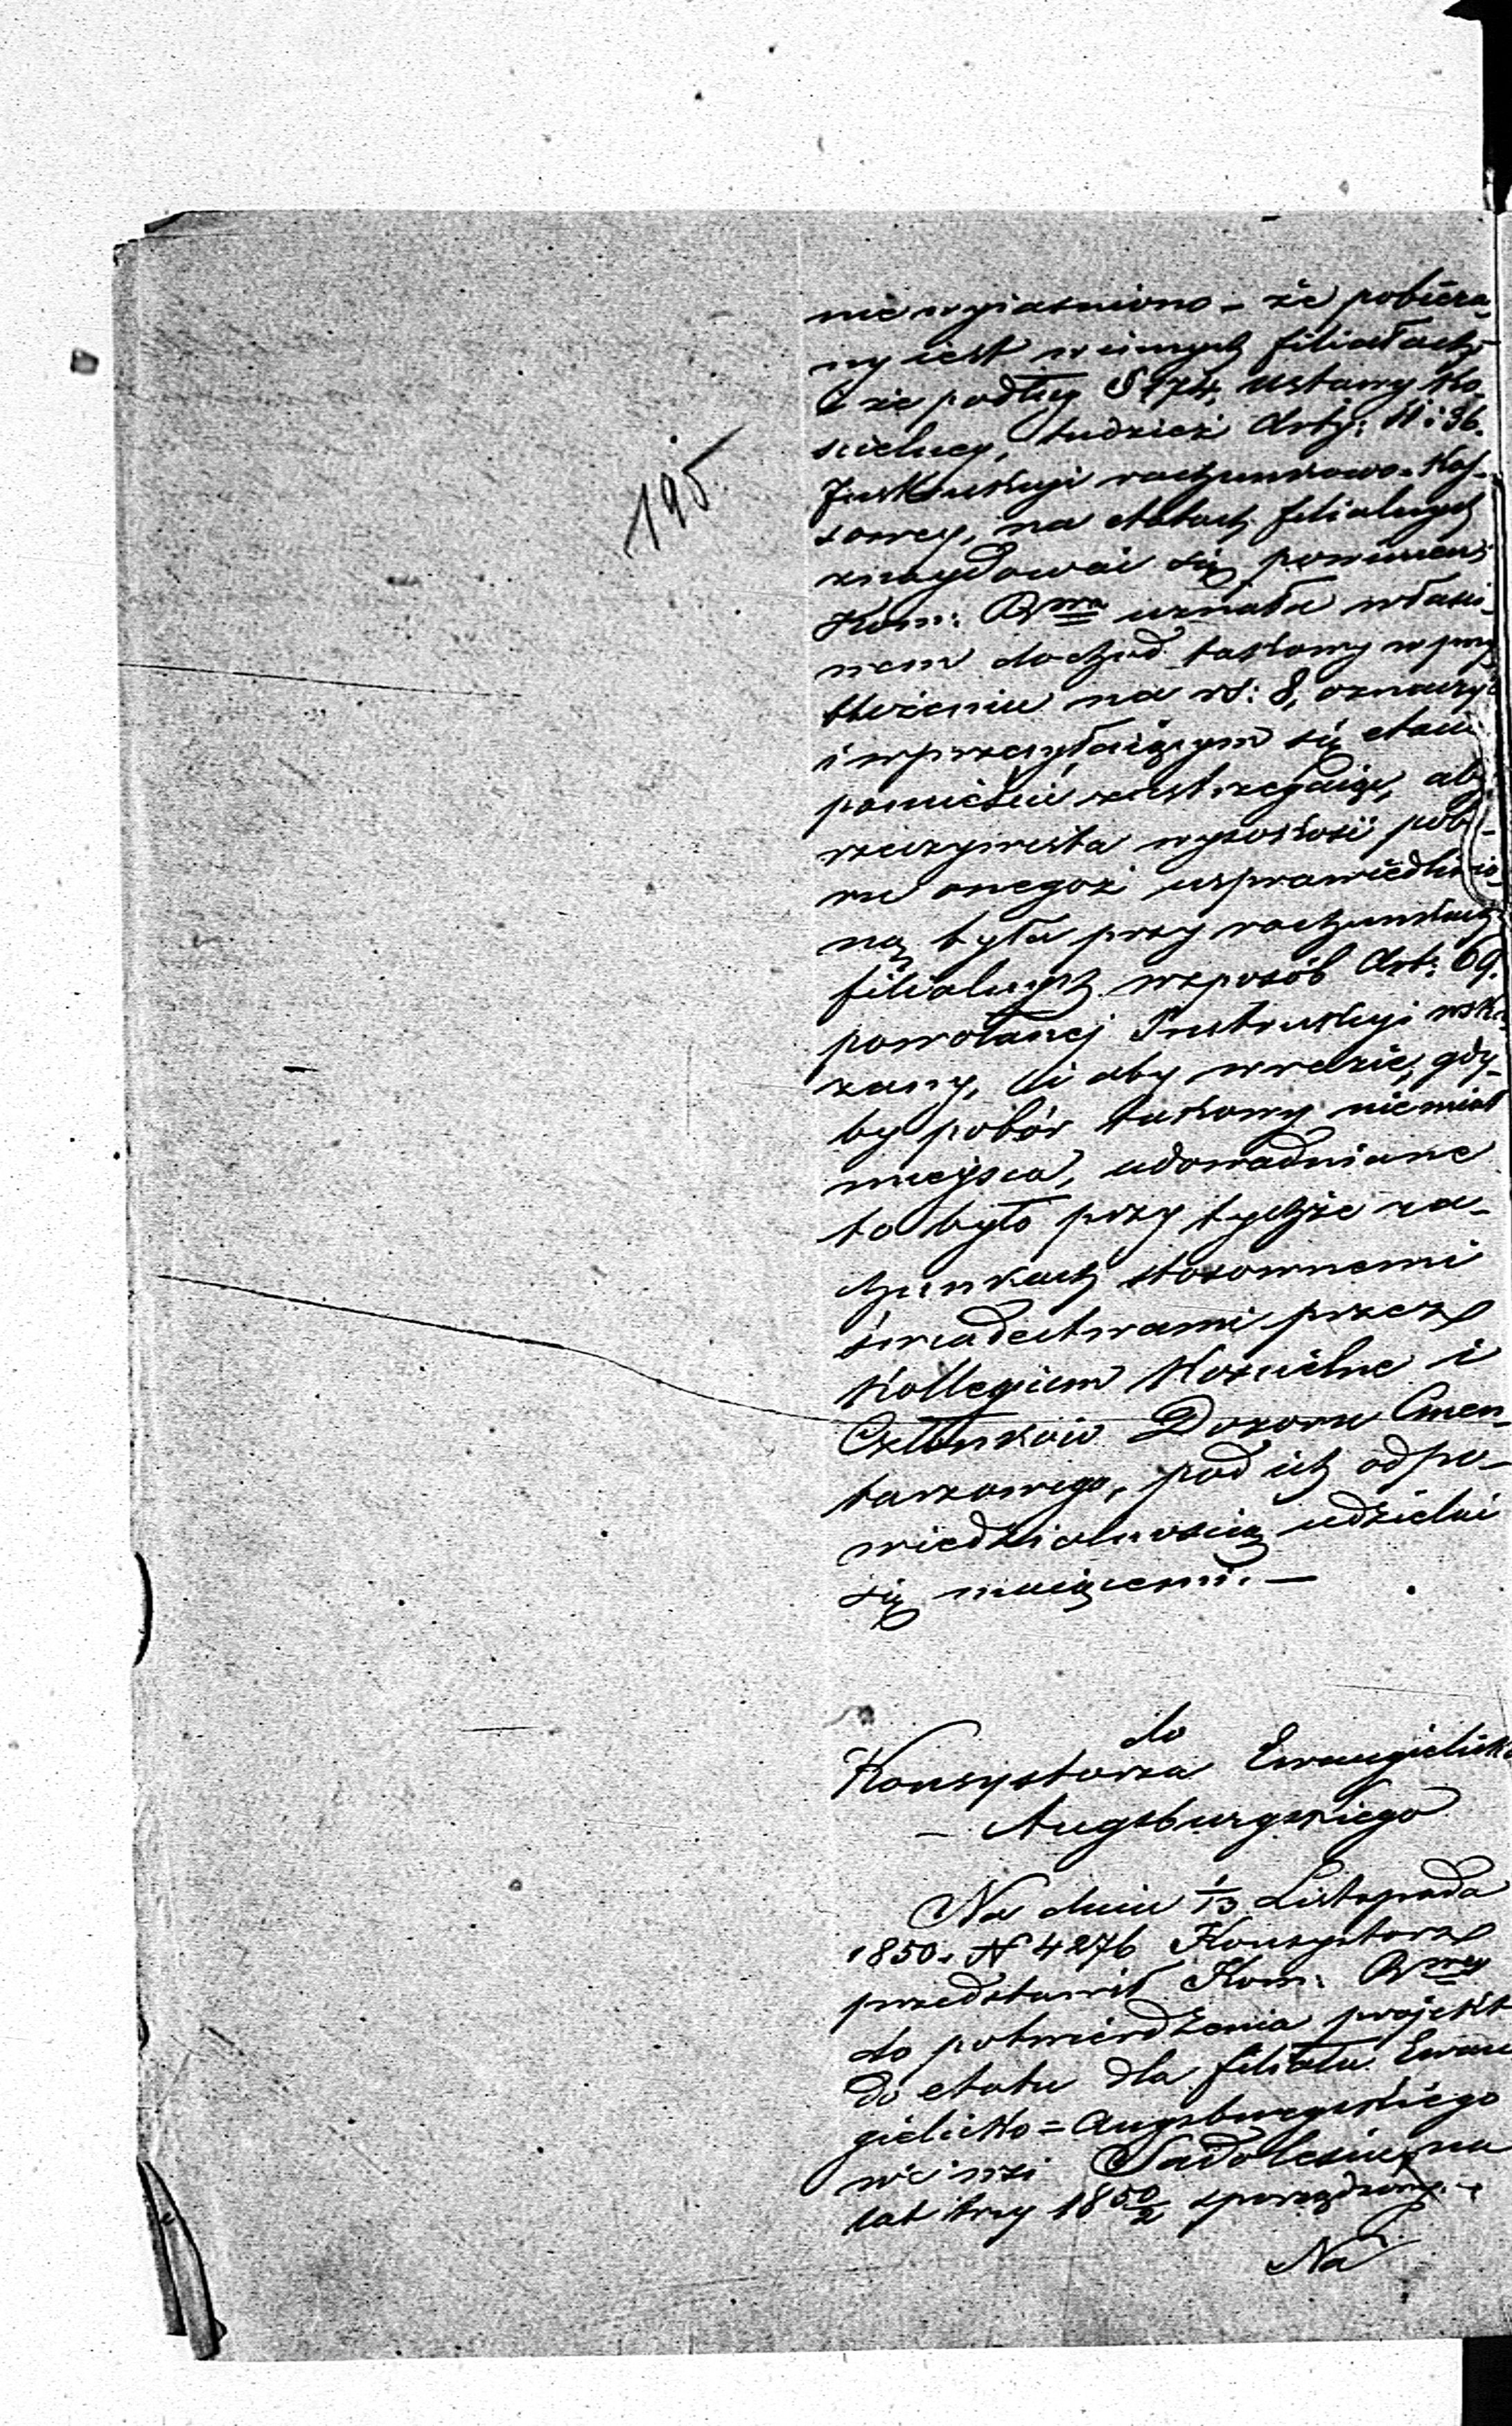 195
nie wyiasniono – że pobiera-
ny iest w innych filiałach
i że podług § 174, Ustawy Ko-
scielney, tudzież Arty: 11 i 36.
Instrukcyi rachunkowo-Kas-
sowey, na etatach filialnych
znaydować się powinien
Kom: R<sup>wa</sup> uznała właści-
wem dochód takowy w przy
bliżeniu na rs: 8, oznaczyć
i w przesyłaiącym się etacie
pomieścić zastrzegaiąc, aby
rzeczywista wysokość pobo-
ru onegoż usprawiedliwio-
ną była przy rachunkach
filialnych w sposób Art: 69.
powołanej Instrukcyi wska
zany, i aby w razie, gdy-
by pobór takowy nie miał
mieysca, udowadniane
to było przy tychże ra-
chunkach stosownemi
świadectwami przez
Kollegium Koscielne i
Członków Dozoru Cmen-
tarzowego, pod ich odpo-
wiedzialnością udzielać
się maiącemi. –
do
Konsystorza Ewangielicko
– Augsburgskiego
Na dniu 1/13 Listopada
1850. N 4276 Konsystorz
przedstawił Kom: R<sup>wey</sup>
do potwierdzenia projekt
do etatu dla filiału Ewan
gielicko=Augsburgskiego
we wsi Sadoleśiu, na
lat trzy 1850/2 sporządzony. –
Na